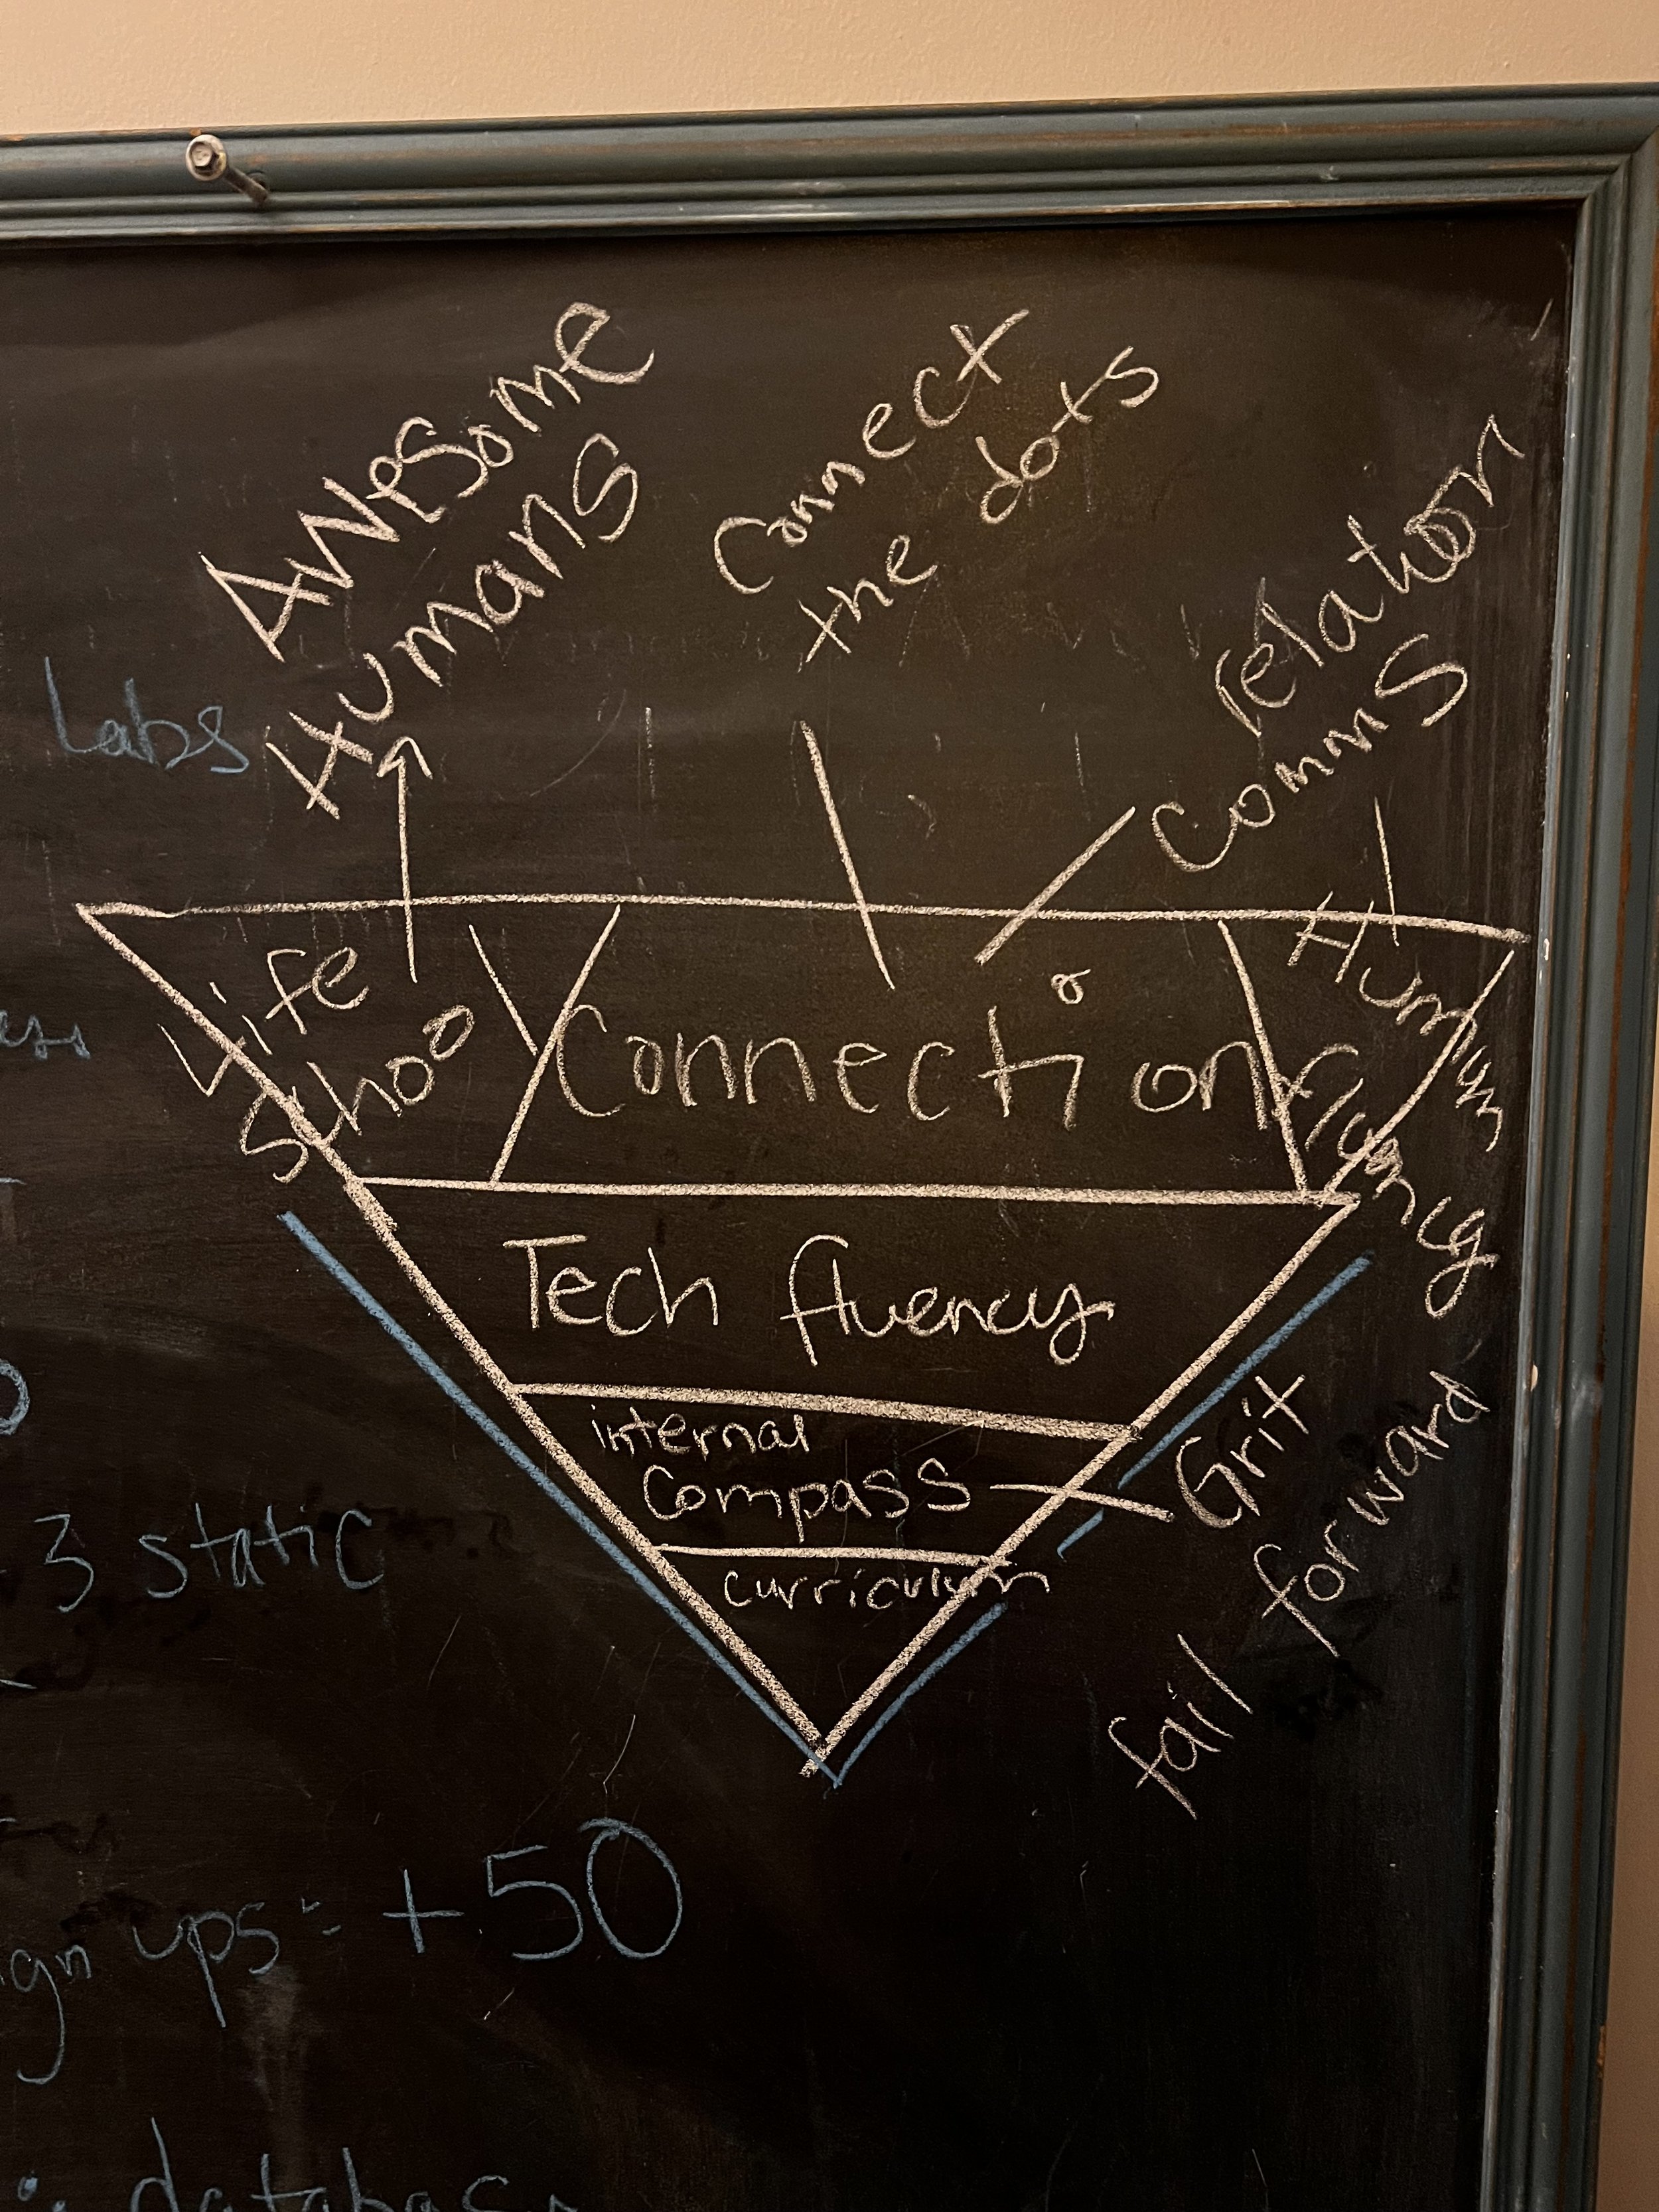 Awesome
Humans
Connect
the dots
relation
Comms
Labs
Life
School
Connection
Human
fluency
Tech fluency
internal
Compass
Grit
fail forward
curriculum
3 static
ups: +50
database